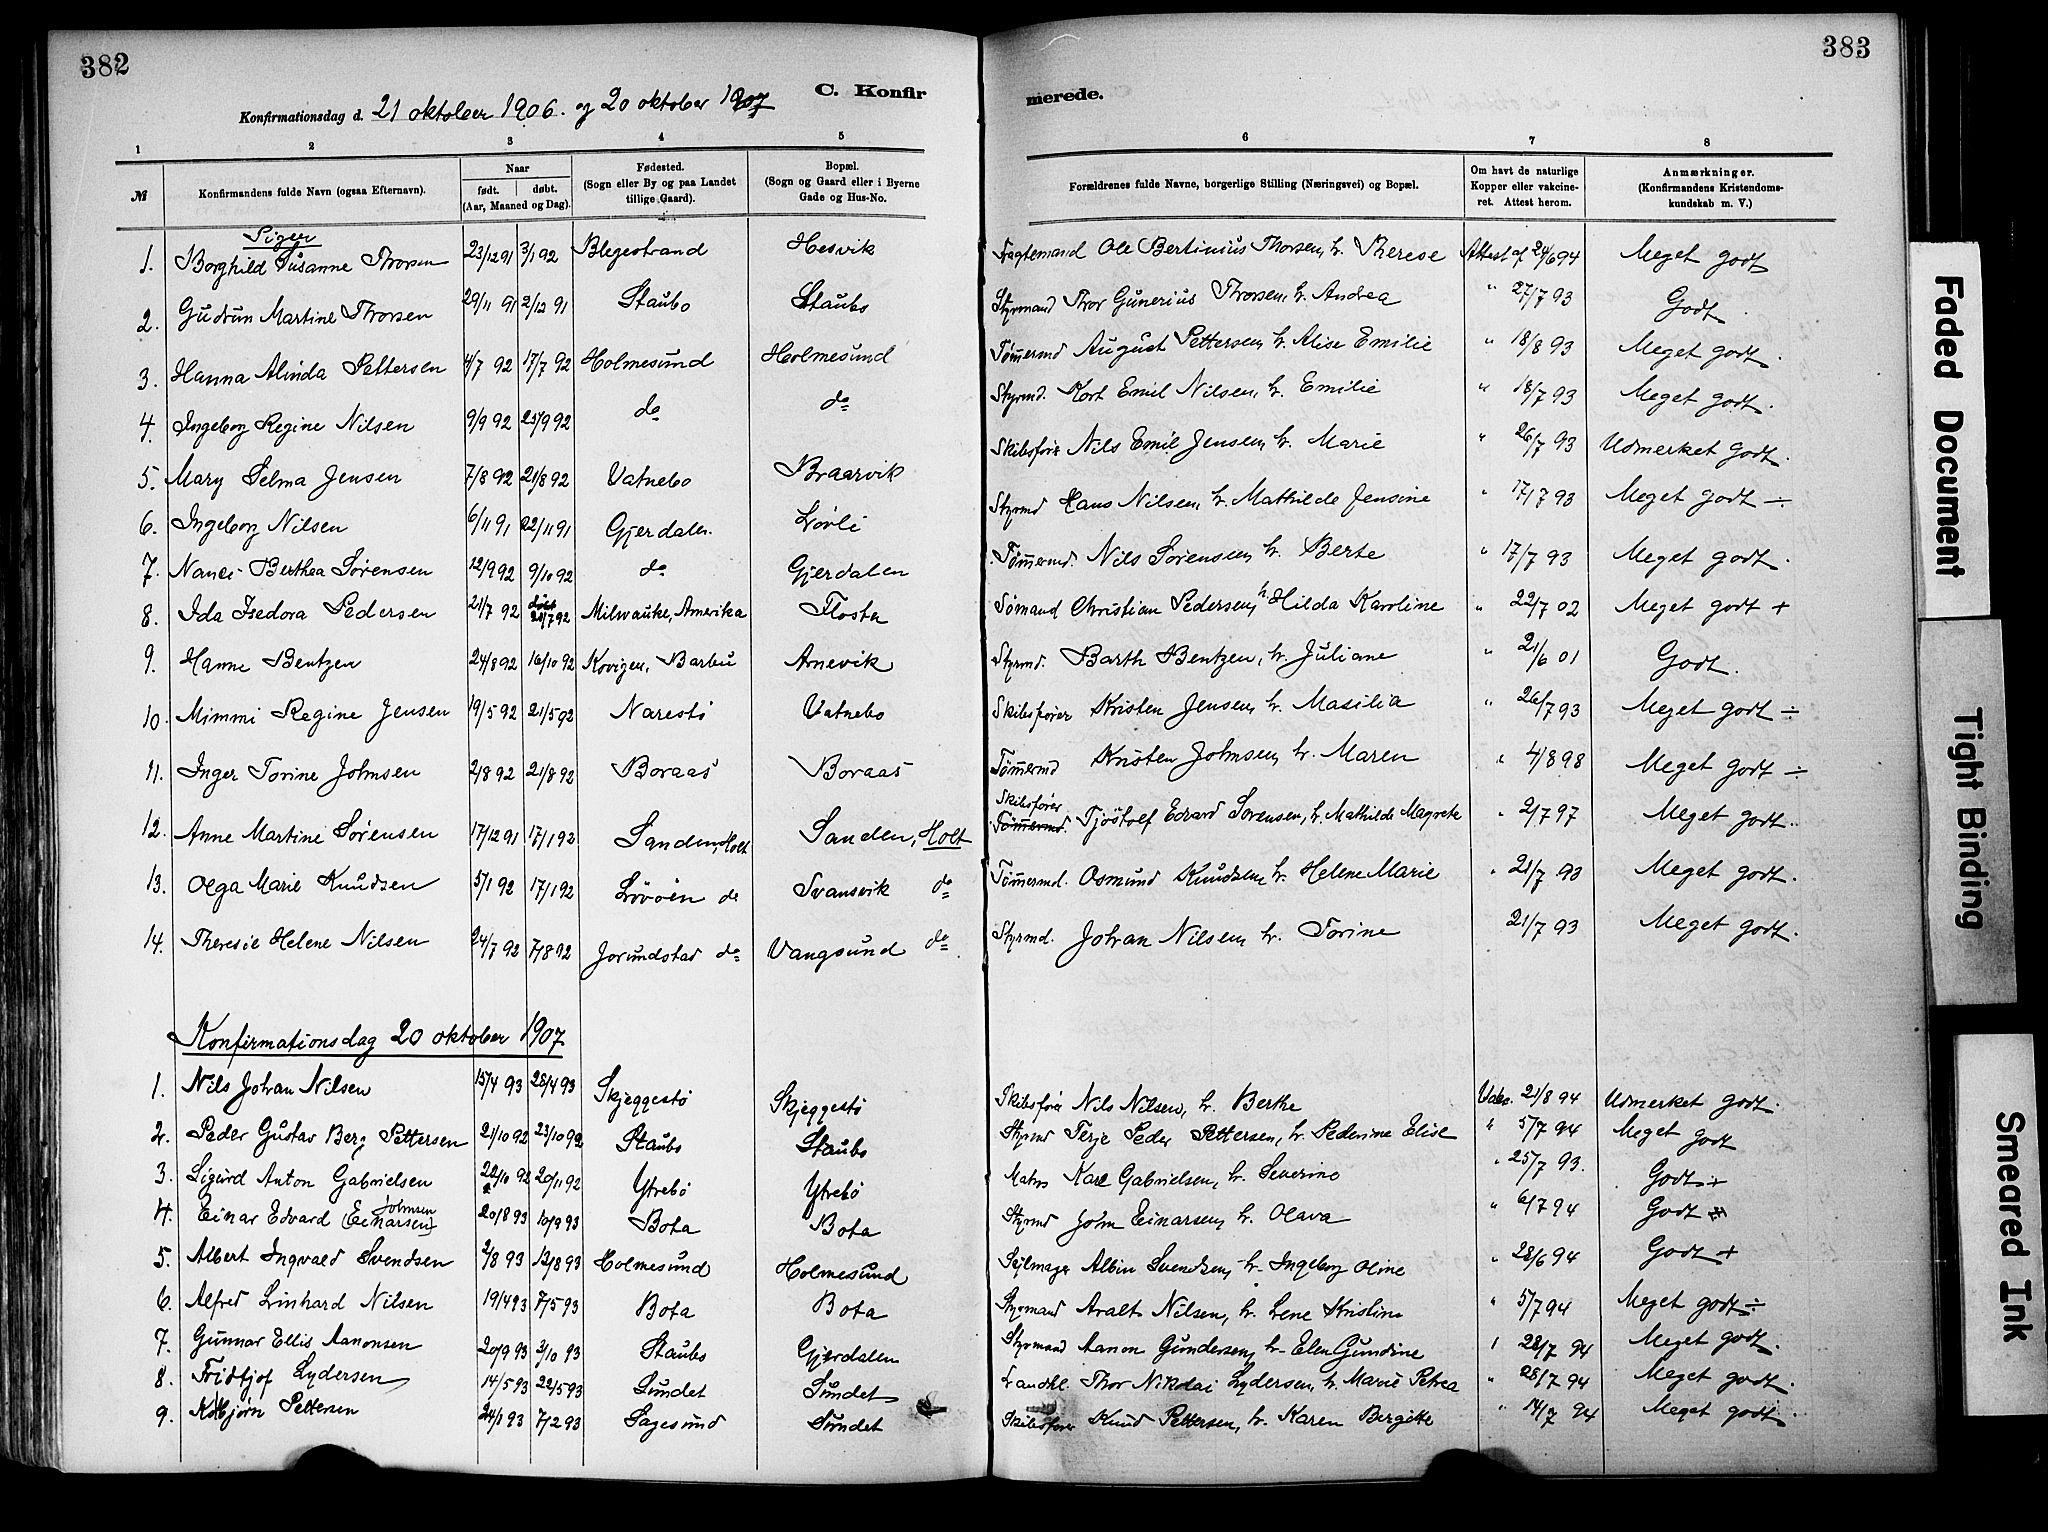 382
383
C. Konfirmerede.
Konfirmationsdag d. 21 oktober 1906. og 20 oktober 1907
1 2 3 4 5 6 7 8
№ Konfirmandens fulde Navn (ogsaa Efternavn). Naar født. døbt. (Aar, Maaned og Dag). Fødested. (Sogn eller By og paa Landet tillige Gaard). Bopæl. (Sogn og Gaard eller i Byerne Gade og Hus-No. Forældrenes fulde Navne, borgerlige Stilling (Næringsvei) og Bopæl. Om havt de naturlige Kopper eller vakcineret. Attest herom. Anmærkninger. (Konfirmandens Kristendomskundskab m. V.)
Piger
1. Borghild Susanne Thorsen 23/12 91 3/1 92 Blegestrand Hesvik Fragtemand Ole Bertinius Thorsen, h. Therese Attest af 24/6 94 Meget godt
2. Gudrun Martine Thorsen 29/11 91 2/12 91 Staubo Staubo Styrmand Thor Gunerius Thorsen, h. Andrea " 27/7 93 Godt.
3. Hanna Alinda Pettersen 4/7 92 17/7 92 Holmesund Holmesund Tømermd August Pettersen, h. Alise Emilie " 18/8 93 Meget godt.
4. Ingeborg Regine Nilsen 9/9 92 25/9 92 do do Styrmd. Kort Emil Nilsen, h. Emilie " 18/7 93 Meget godt.
5. Mary Selma Jensen 7/8 92 21/8 92 Vatnebo Braarvik Skibsfører Nils Emil Jensen, h. Marie " 26/7 93 Udmerket godt.
6. Ingeborg Nilsen 6/11 91 22/11 91 Gjerdalen. Løvli Styrmd Hans Nilsen, h. Mathilde Jensine " 17/7 93 Meget godt ÷
7. Nanci Berthea Sørensen 12/9 92 9/10 92 do Gjerdalen Tømermd. Nils Sørensen, h. Berte " 17/7 93 Meget godt.
8. Ida Isedora Pedersen 21/7 92 døbt 28/7 92 Milwauke, Amerika Flosta Sømand Christian Pedersen, h. Hilda Karoline " 22/7 02 Meget godt +
9. Hanne Bentzen 24/8 92 16/10 92 Kovigen, Barbu Arnevik Styrmd. Barth Bentzen, h. Juliane " 21/6 01 Godt.
10. Mimmi Regine Jensen 19/5 92 21/5 92 Narestø Vatnebo Skibsfører Kristen Jensen, h. Masilia " 26/7 93 Meget godt ÷
11. Inger Torine Johnsen 2/8 92 21/8 92 Boraas Boraas Tømermd Kristen Johnsen, h. Maren " 4/8 98 Meget godt ÷
12. Anne Martine Sørensen 17/12 91 17/1 92 Sanden, Holt Sanden, Holt Skibsfører Tømermd. Tjøstolf Edvard Sørensen, h. Mathilde Magrete " 2/7 97 Meget godt.
13. Olga Marie Knudsen 5/1 92 17/1 92 Løvøen do Svansvik do Tømermd. Osmund Knudsen, h. Helene Marie " 21/7 93 Meget godt.
14. Theresie Helene Nilsen 24/7 92 7/8 92 Jorundstad do Vangsund do Styrmd. Johan Nilsen, h. Torine 21/7 93 Meget godt.
Konfirmationsdag 20 oktober 1907
1. Nils Johan Nilsen 15/4 93 28/4 93 Skjeggestø Skjeggestø Skibsfører Nils Nilsen, h. Berthe 21/8 94 Udmerket godt.
2. Peder Gustav Berg Pettersen 21/10 92 23/10 92 Staubo Staubo Styrmd Terje Peder Pettersen, h. Pedermine Elise " 5/7 94 Meget godt
3. Sigurd Anton Gabrielsen 22/10 92 20/11 92 Ytrebø Ytrebø Matros Karl Gabrielsen, h. Severine " 25/7 93. Godt +
4. Einar Edvard (Einarsen) Johnsen 20/8 93 10/9 93 Bota Bota Styrmd John Einarsen, h. Olava " 6/7 94 Godt +
5. Albert Ingvald Svendsen 2/8 93 13/8 93 Holmesund Holmesund Sejlmager Albin Svendsen, h. Ingeborg Oline " 28/6 94 Godt +
6. Alfred Linhard Nilsen 19/4 93 7/5 93 Bota Bota Styrmand Aralt Nilsen, h. Lene Kristine " 5/7 94 Meget godt ÷
7. Gunnar Ellis Aanonsen 20/9 93 3/10 93 Staubo Gjerdalen Styrmand Aanon Gundersen, h. Elen Gundine " 28/7 94 Meget godt.
8. Fridtjof Lydersen 14/5 93 22/5 93 Sundet Sundet Landhl. Thor Nikolai Lydersen, h. Marie Petrea " 28/7 94 Meget godt.
9. Kolbjørn Pettersen 24/1 93 7/2 93 Sagesund Sundet Skibsfører Knud Pettersen, h. Karen Bergitte " 14/7 94 Meget godt
Faded Document
Tight Binding
Smeared Ink